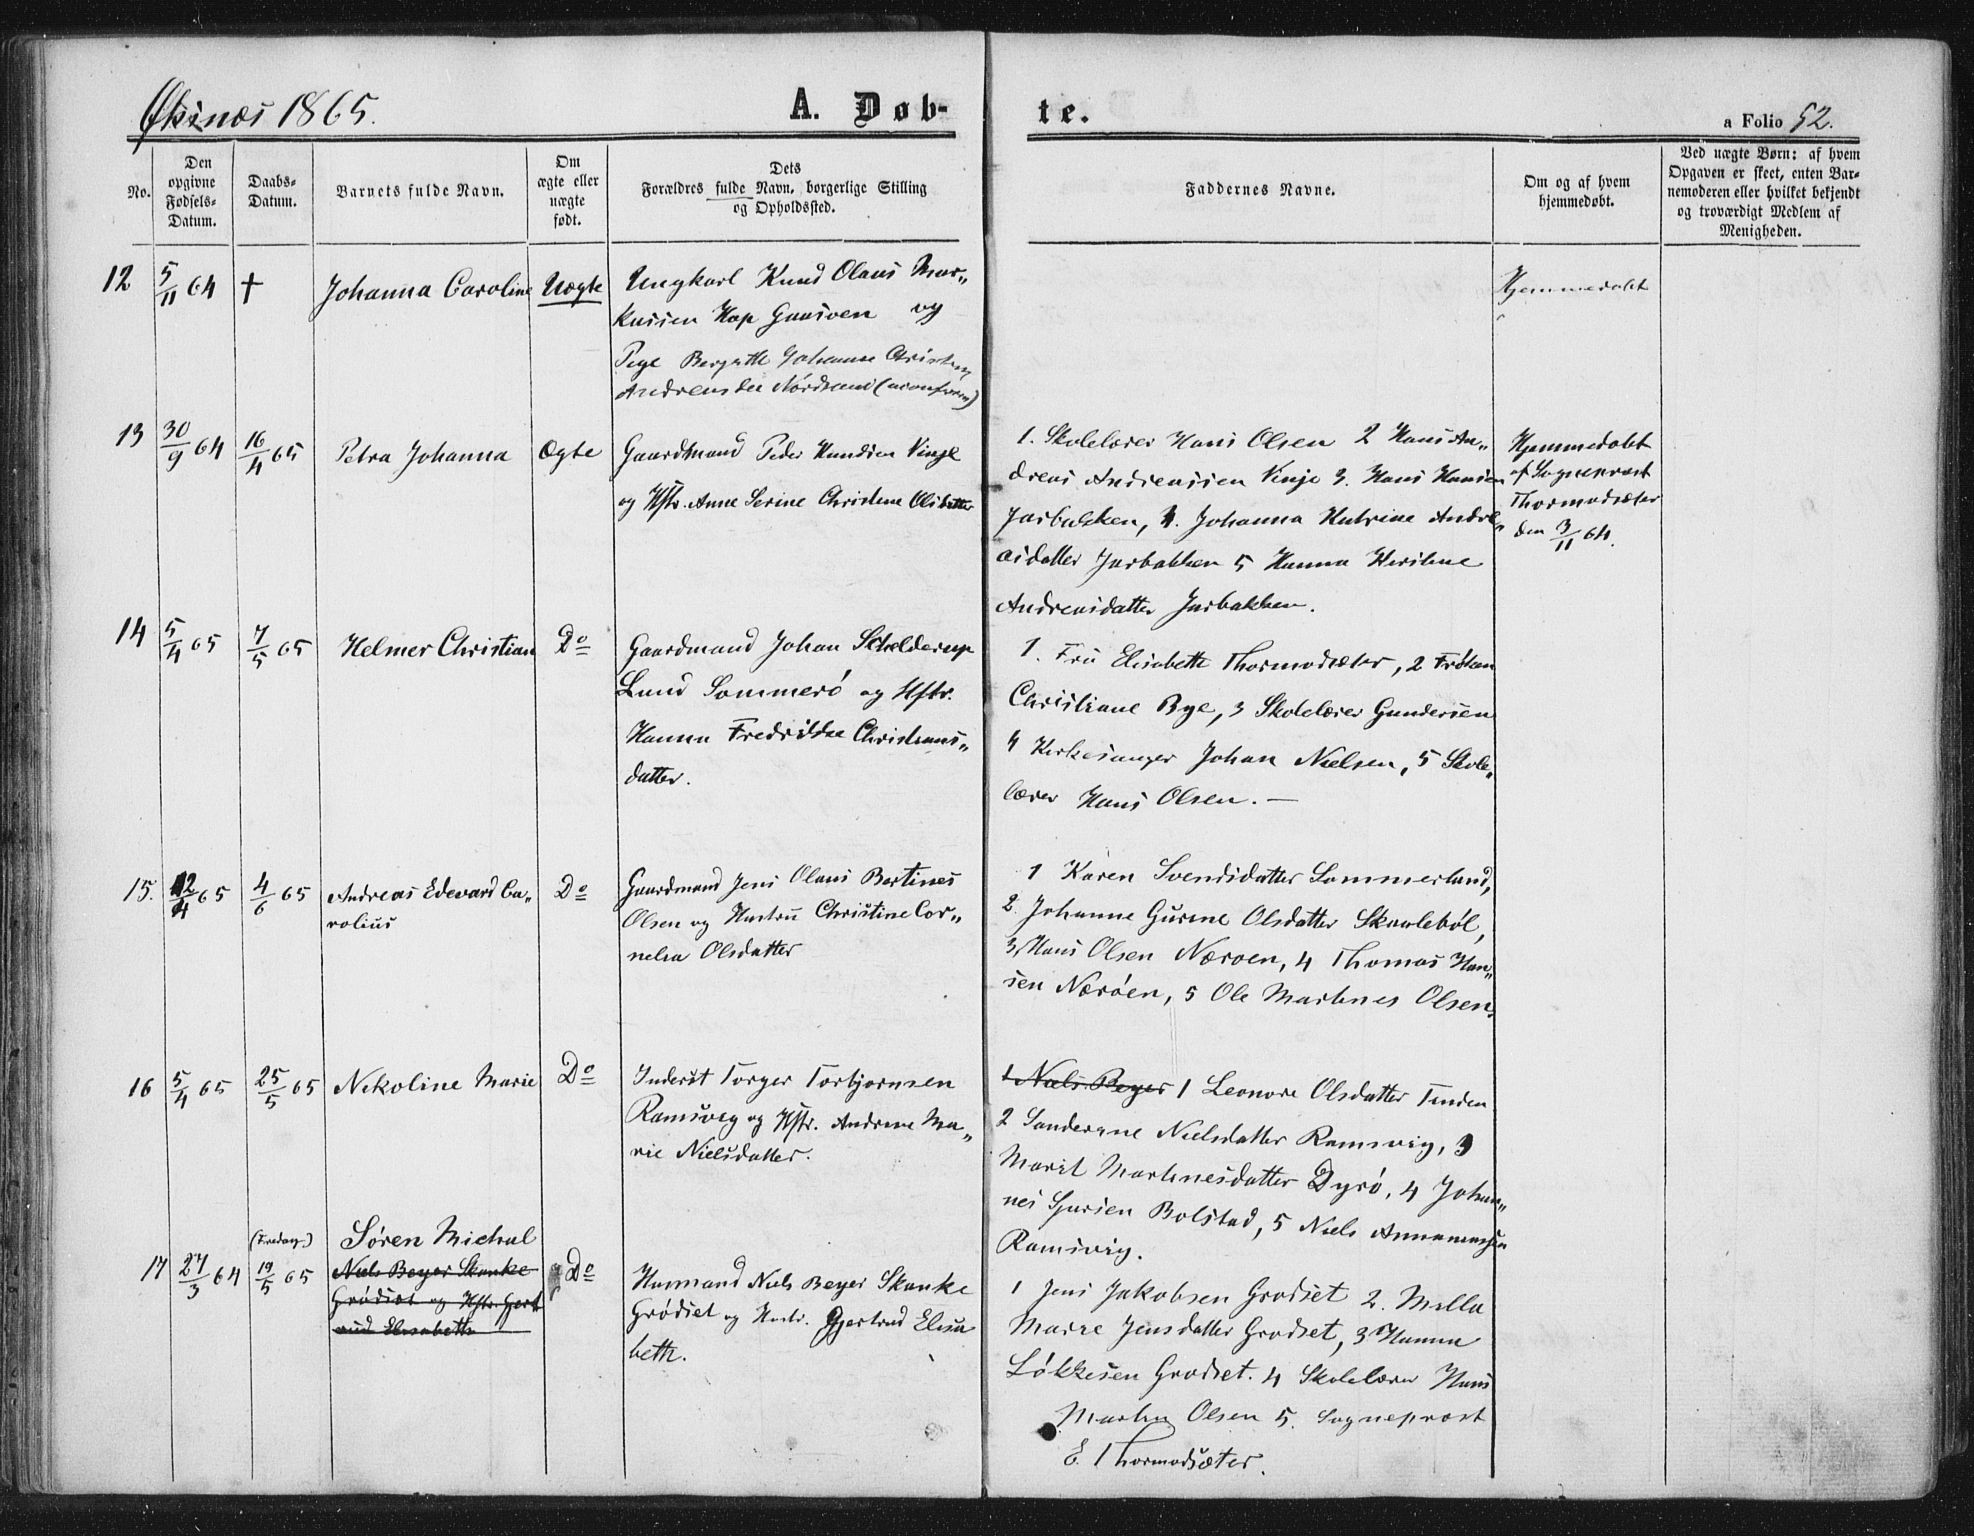 Øksnæs 1865.
A. Døb-
te.
a Folio 52.
No.
Den
opgivne
Fødsels-
Datum.
Daabs-
Datum.
Barnets fulde Navn.
Om
ægte eller
uægte
født.
Dets
Forældres fulde Navn, borgerlige Stilling
og Opholdssted.
Faddernes Navne.
Om og af hvem
hjemmedøbt.
Ved uægte Børn: af hvem
Opgaven er skeet, enten Bar-
nemoderen eller hvilket bekjendt
og troværdigt Medlem af
Menigheden.
12
5/11 64
†
Johanna Caroline
Uægte
Ungkarl Knud Olaus Mar„
kussen Kap Gaasøen og
Pige Johanna
Andreasda
Hjemmedøbt
13
30/9 64
16/4 65
Petra Johanna
Ægte
Gaardmand Peder Knudsen Vinje
og Hstr. Anne Serine Christine Olsdatter
1. Skolelærer Hans Olsen 2 Hans An„
dreas Andreassen Vinje 3. Hans Hansen
Jorbakken, 4. Johanna Katrine Andre„
asdatter Jorbakken 5 Hanna
Andreasdatter Jorbakken.
Hjemmedøbt
af Sognepræst
Thormodsæter
den 3/11 64.
14
5/4 65
7/5 65
Helmer Christian
Do
Gaardmand Johan Schelderup
Lund Sommerö og Hstr.
Hanna Fredrikke Christians„
datter.
1. Fru Elisabeth Thormodsæter, 2 Frøken
Christiane Bye, 3 Skolelærer Gundersen
4 Kirkesanger Johan Nielsen, 5 Skole„
lærer Hans Olsen. —
15.
12/4 65
4/6 65
Andreas Edevard Ca„
rolius
Do
Gaardmand Jens Olaus Bertines
Olsen og Hustru Christine Cor„
nelia Olsdatter
1 Karen Svendsdatter Sommerland,
2. Johanne Gurine Olsdatter Skavlebøl,
3, Hans Olsen Næröen, 4 Thomas Han„
sen Næröen, 5 Ole Martines Olsen.
16
5/4 65
25/5 65
Nikoline Marie
Do
Inderst Torger Torbjørnsen
Ramsvig og Hstr. Andrine Ma„
rie Nielsdatter.
1 Niels Beyer 1 Leonore Olsdatter Tinden
2 Sanderine Nielsdatter Ramsvig, 3
Marit Martinesdatter Dyrö, 4 Johan„
nes Bolstad, 5 Niels
Ramsvig.
17
27/3 64
(Fredag)
19/5 65
Søren Michal
Niels Beyer Skanke
Grødset og Hstr. Gjert
rud Elisabeth
Do
Huusmand Niels Beyer Skanke
Grödset og Hustr. Gjertrud Elisa
beth.
1 Jens Jakobsen Grodset 2. Milla
Marie Jensdatter Grodset, 3 Hanna
Lökkesen Grodset. 4 Skolelærer Hans
Martin Olsen 5. Sognepræst
E. Thormodsæter.